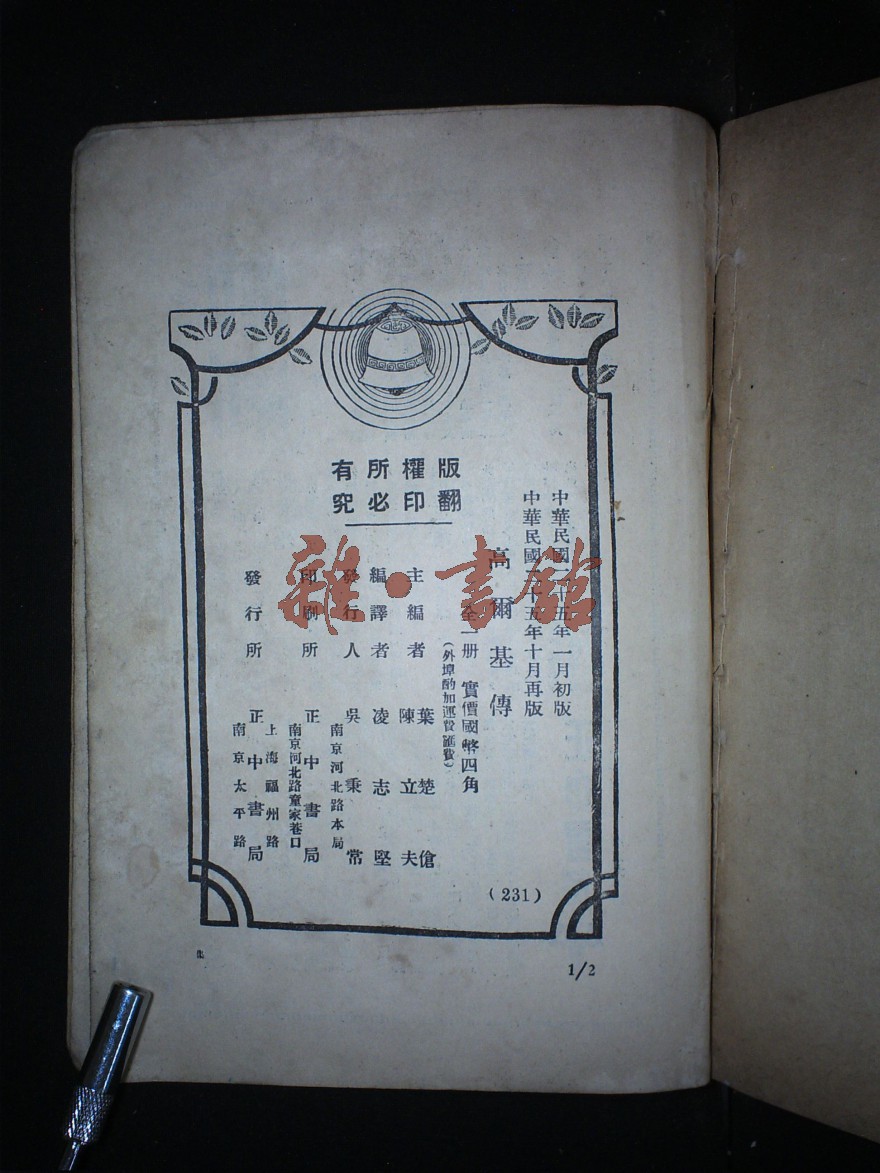 版權所有
翻印必究
中華民國二十五年一月初版
中華民國二十五年十月再版
高爾基傳
全一册 實價國幣四角
(外埠酌加運費滙費)
主編者 葉楚傖
陳立夫
編譯者 凌志堅
發行人 吳秉常
南京河北路本局
印刷所 正中書局
南京河北路童家巷口
發行所 正中書局
上海福州路
南京太平路
(231)
1/2
雜·書館